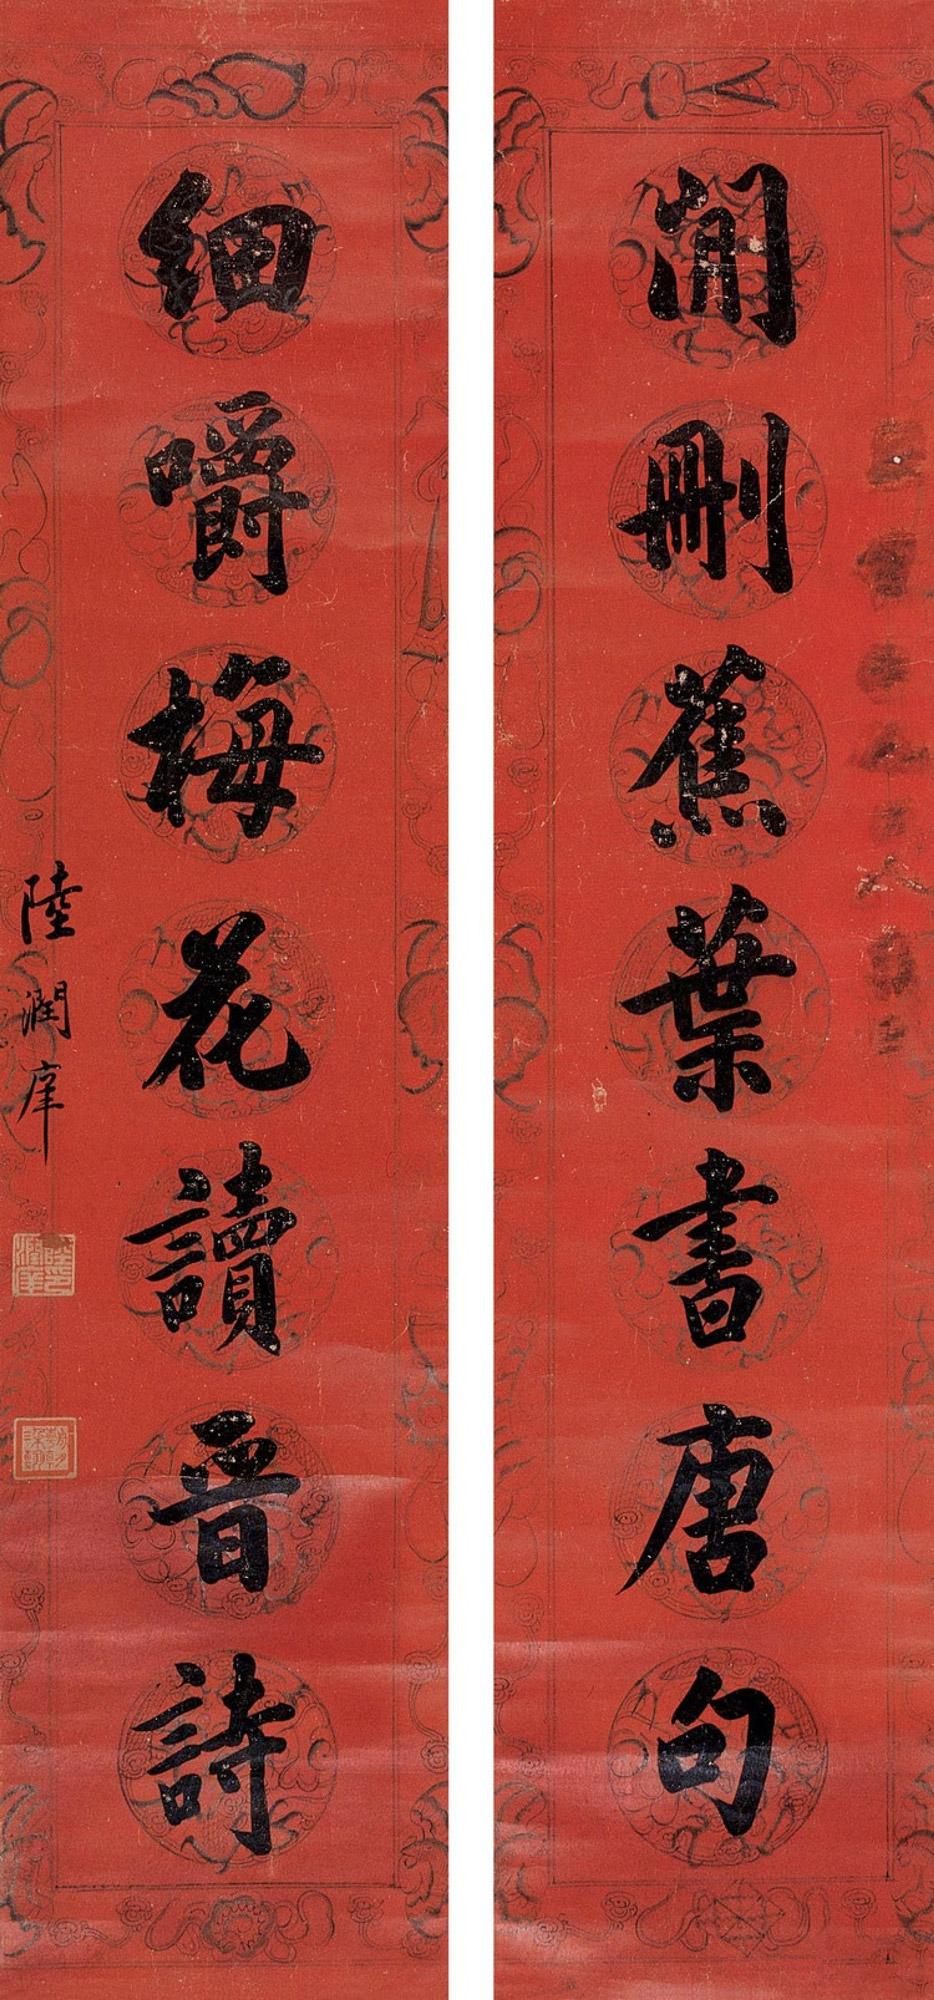 閒刪蕉葉書唐句
細嚼梅花讀晉詩
陸潤庠